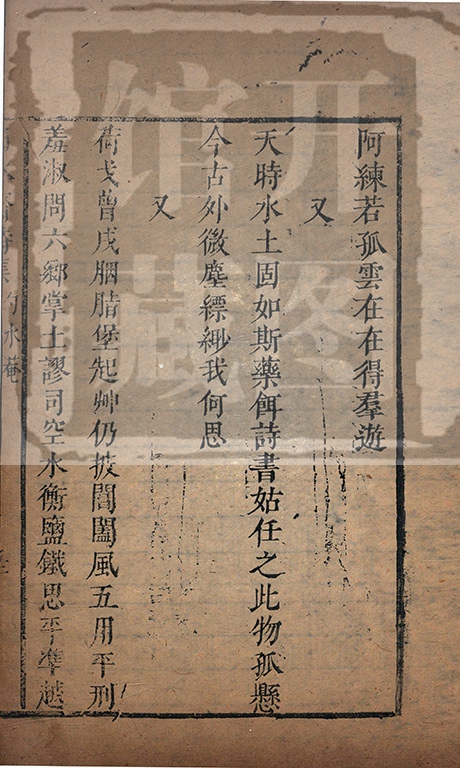 阿練若孤雲在在得羣遊
又
天時水土固如斯藥餌詩書姑任之此物孤懸
今古外微塵縹緲我何思
又
荷戈曾戍胭脂堡起艸仍披閶闔風五用平刑
羞淑問六鄉掌土謬司空水衡鹽鐵思平準越
水菴